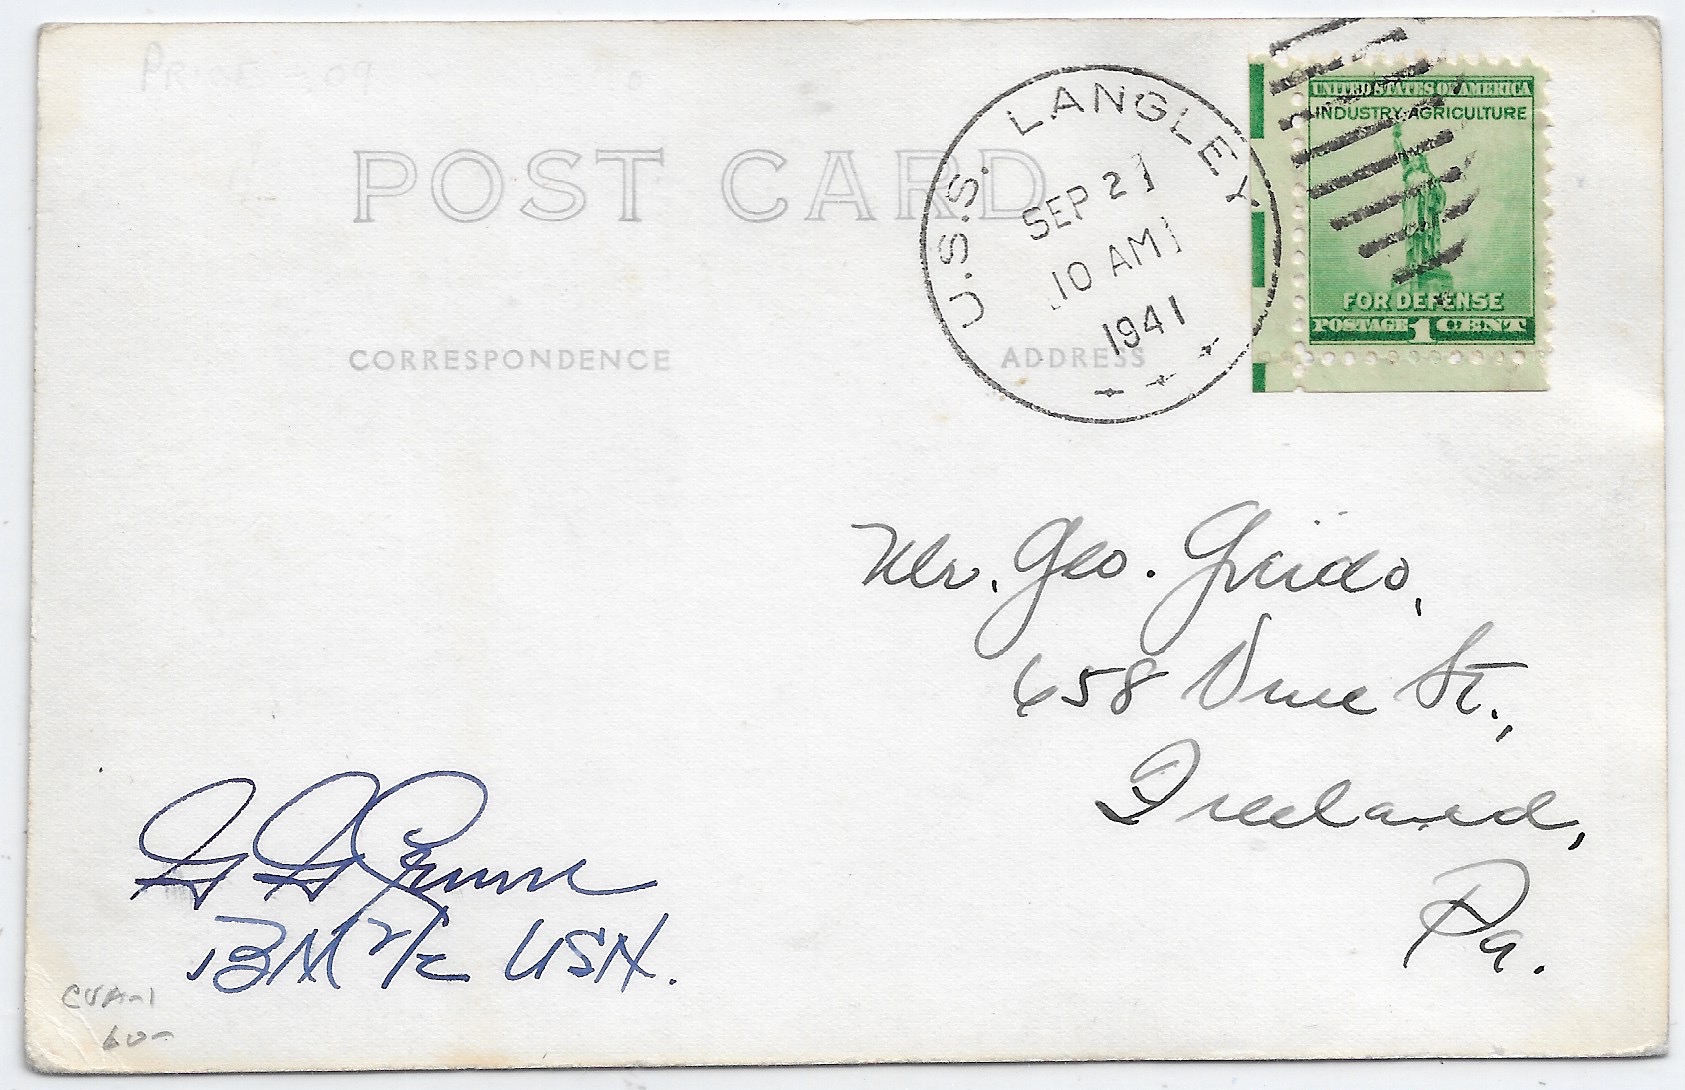 POST CARD
CORRESPONDENCE
ADDRESS
U.S.S. LANGLEY
SEP 21
10 AM
1941
UNITED STATES OF AMERICA
INDUSTRY-AGRICULTURE
FOR DEFENSE
POSTAGE 1 CENT
Mr. Geo. Guido,
658 Vine St.,
Freeland,
Pa.
BM 2/c USN.
CVA-1
60-